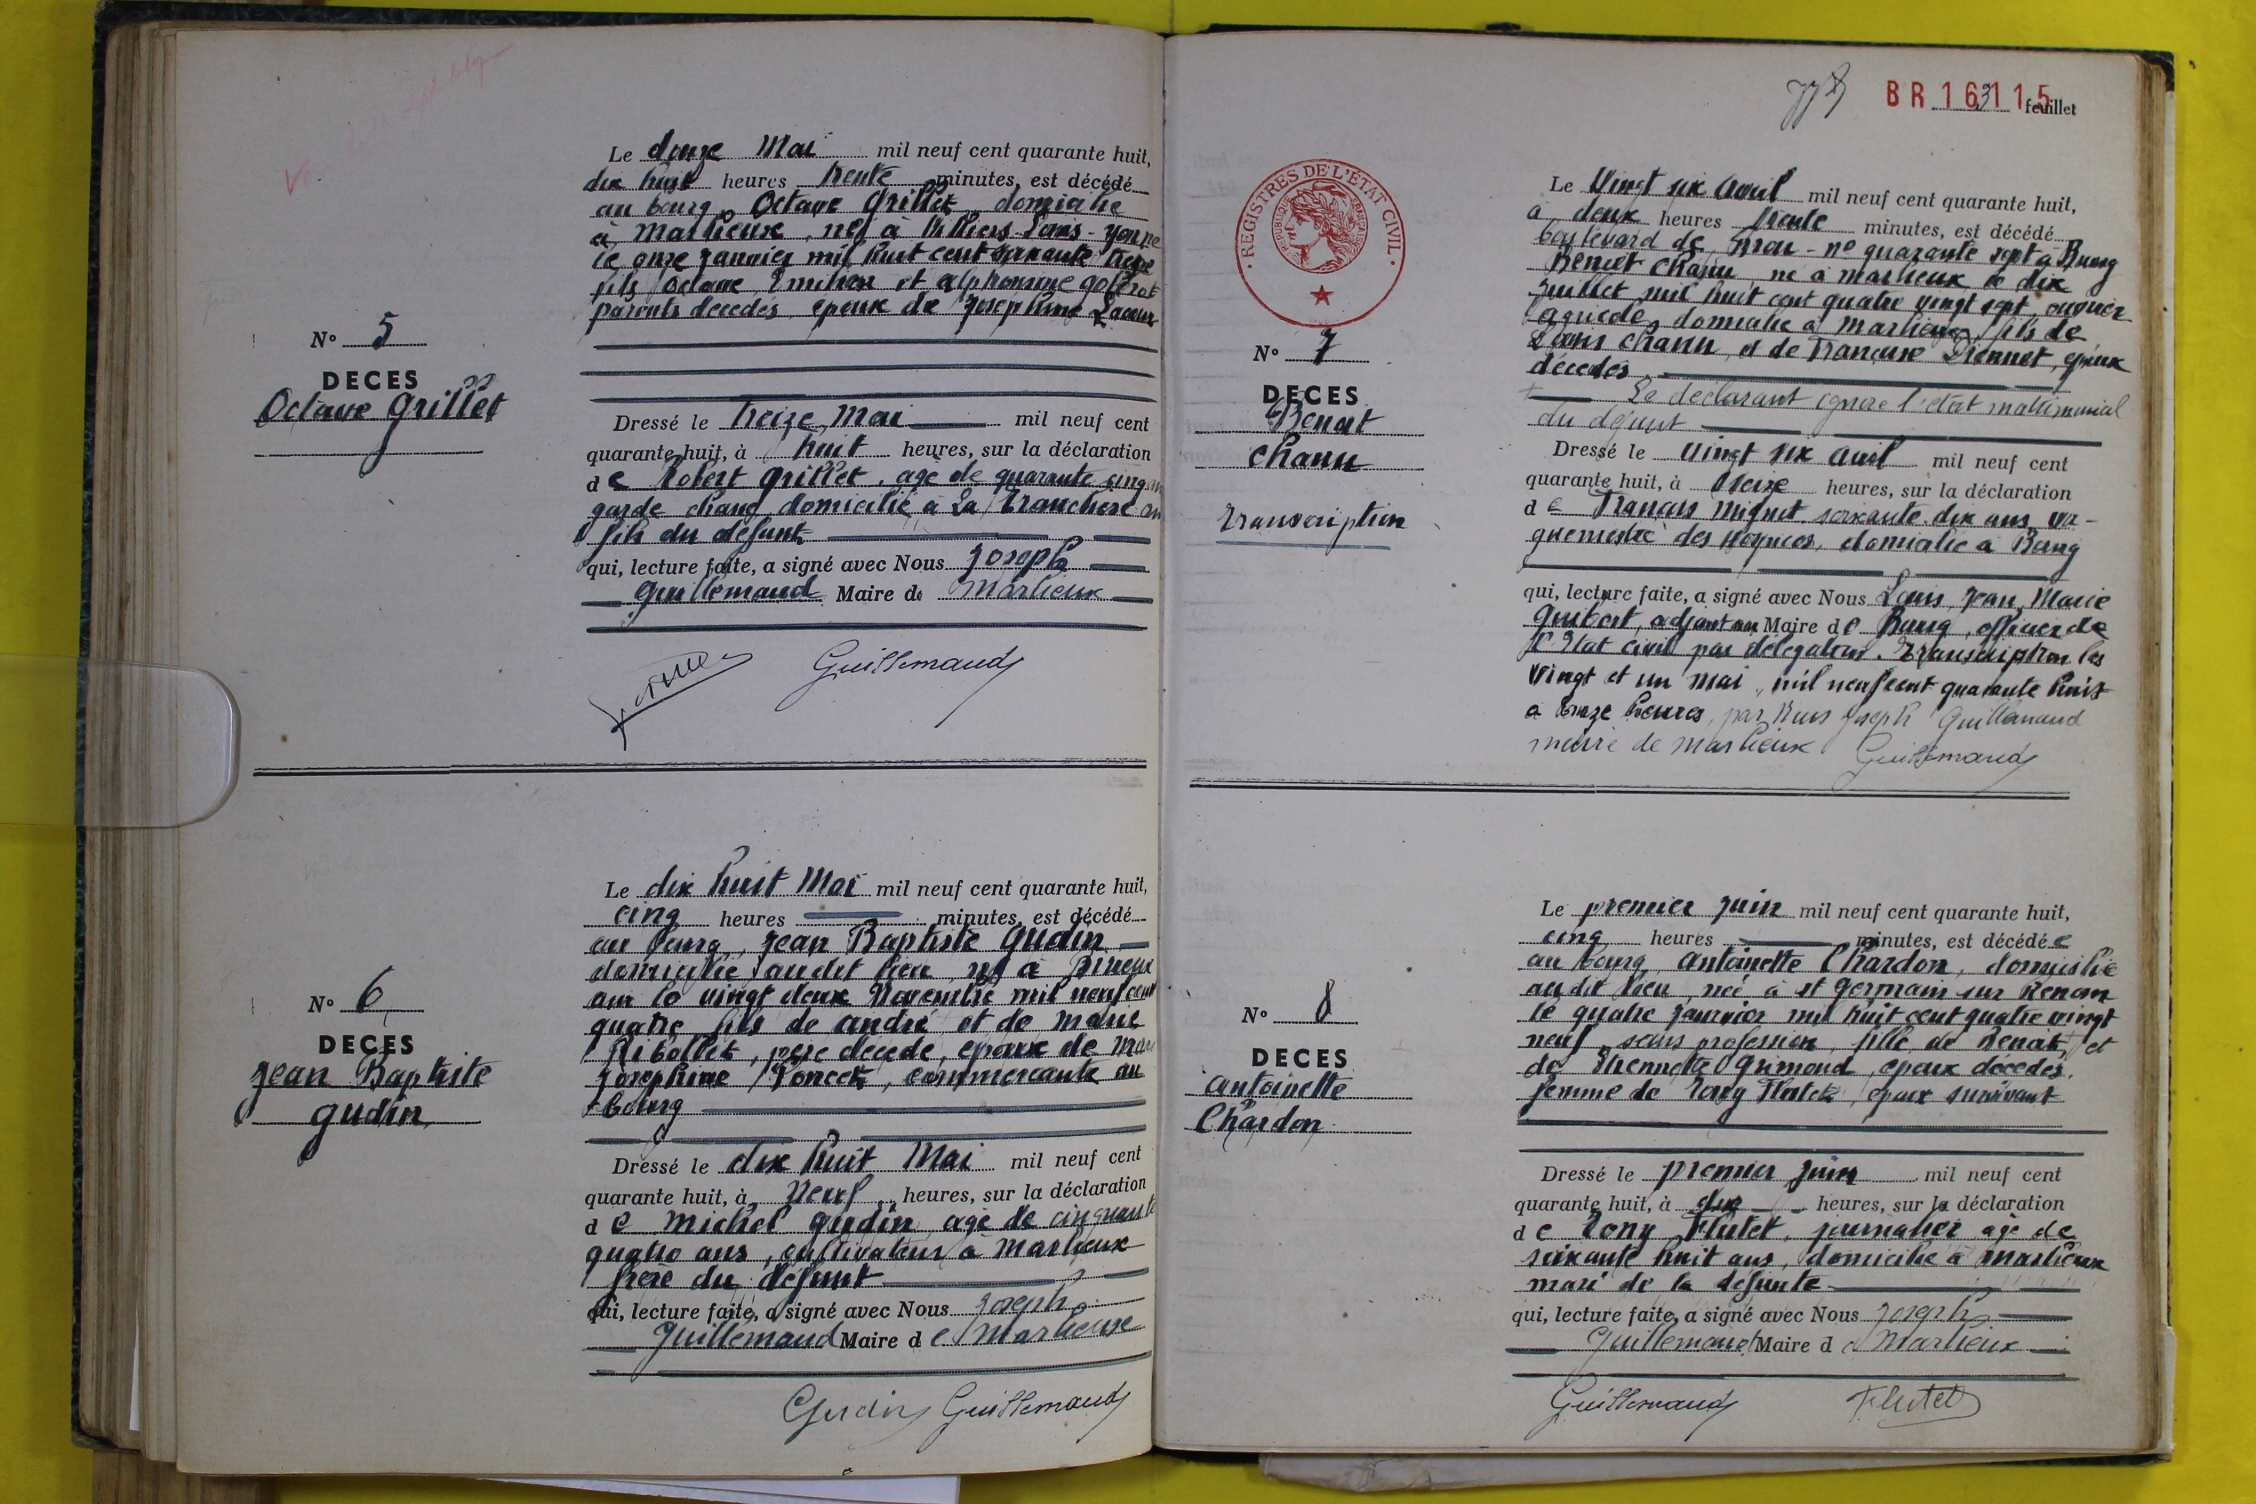 Le douze Mai mil neuf cent quarante huit,
dix huit heures trente minutes, est décédé
au bourg Octave Grillet domicilié
à Marlieux, né à Villiers Louis - Yonne
le onze janvier mil huit cent soixante treize
fils Octave Emilien et Alphonsine
parents décédés époux de Joséphine
N° 5
DECES
Octave Grillet
Dressé le treize Mai mil neuf cent
quarante huit, à huit heures, sur la déclaration
de Robert Grillet, agé de quarante cinq ans
garde domicilié à La Tranclière
fils du défunt
qui, lecture faite, a signé avec Nous Joseph
Guillemaud Maire de Marlieux
Guillemaud
Le dix huit Mai mil neuf cent quarante huit,
cinq heures minutes, est décédé
au bourg, Jean Baptiste Gudin
domicilié audit lieu né à
le vingt deux Novembre mil neuf cent
quatre fils de André et de Marie
Ribollet, père décédé, époux de Marie
Joséphine Poncet, commercante au
bourg
N° 6
DECES
Jean Baptiste
Gudin
Dressé le dix huit Mai mil neuf cent
quarante huit, à Neuf heures, sur la déclaration
de Michel Gudin agé de cinquante
quatre ans, cultivateur à Marlieux
frère du défunt
qui, lecture faite, a signé avec Nous Joseph
Guillemaud Maire de Marlieux
Gudin Guillemaud
BR 16115 feuillet
REGISTRES DE L'ETAT CIVIL
Le Vingt six Avril mil neuf cent quarante huit,
à deux heures trente minutes, est décédé
boulevard de Brou - n° quarante sept à Bourg
Benoit Chanu né à Marlieux le dix
juillet mil huit cent quatre vingt sept, ouvrier
agricole, domicilié à Marlieux, fils de
Louis Chanu et de Françoise Diennet, époux
décédés
Le déclarant ignore l'état matrimonial
du défunt
N° 7
DECES
Benoit
Chanu
Transcription
Dressé le vingt six Avril mil neuf cent
quarante huit, à treize heures, sur la déclaration
de François Miguet soixante dix ans va-
guemestre des Hospices, domicilié à Bourg
qui, lecture faite, a signé avec Nous Louis, Jean, Marie
Guibert, adjoint au Maire de Bourg, officier de
l'Etat civil par délégation. Transcription les
Vingt et un Mai mil neuf cent quarante huit
à onze heures, par Nous Joseph Guillemaud
maire de Marlieux Guillemaud
Le premier juin mil neuf cent quarante huit,
cinq heures minutes, est décédée
au bourg, Antoinette Chardon, domiciliée
audit lieu, née à St Germain sur Renon
le quatre janvier mil huit cent quatre vingt
neuf sans profession, fille de Benoit, et
de Etiennette Grimond, époux décédés,
femme de Tony Flutet, époux survivant
N° 8
DECES
Antoinette
Chardon
Dressé le premier juin mil neuf cent
quarante huit, à dix heures, sur la déclaration
de Tony Flutet, journalier agé de
soixante huit ans, domicilié à Marlieux
mari de la défunte
qui, lecture faite, a signé avec Nous Joseph
Guillemaud Maire d Marlieux
Guillemaud Flutet